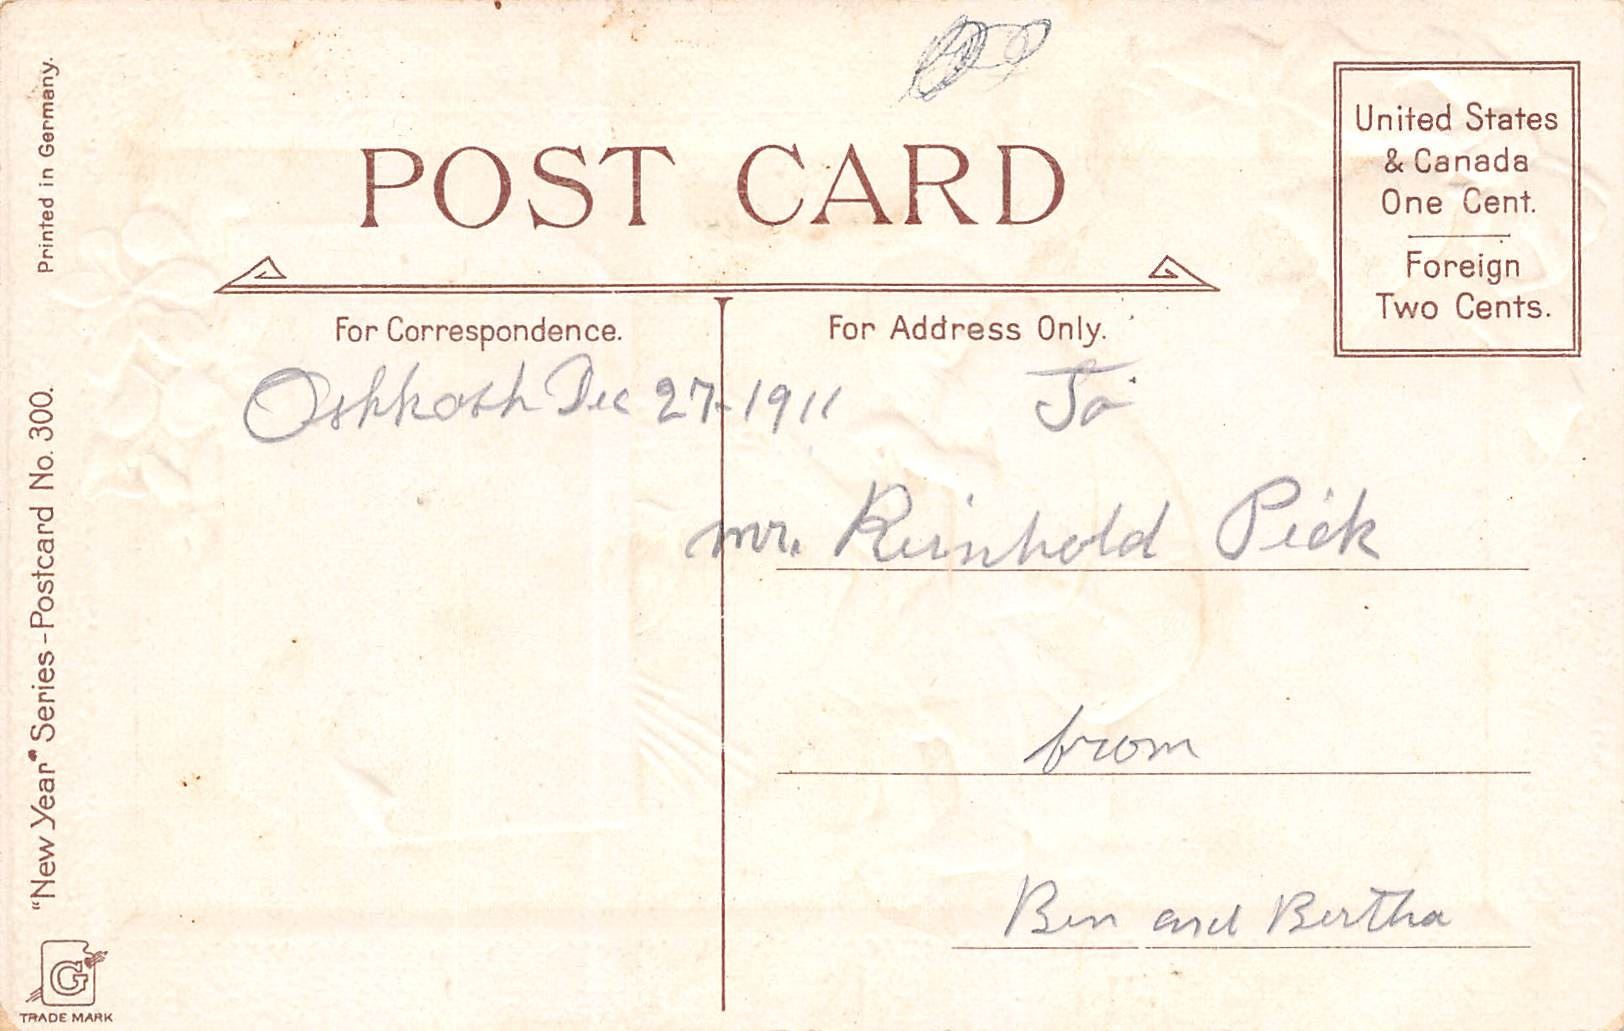 POST CARD
United States
& Canada
One Cent.
Foreign
Two Cents.
For Correspondence.
For Address Only.
Oshkosh Dec 27-1911
To
Mr. Reinhold Pick
from
Ben and Bertha
Printed in Germany.
"New Year" Series - Postcard No. 300.
G
TRADE MARK